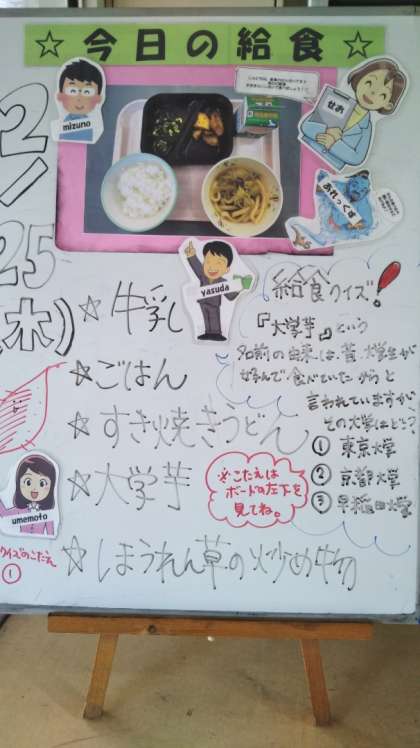 ☆今日の給食☆
mizuno
せお
あれっくす
yasuda
2/25(木)
☆牛乳
☆ごはん
☆すき焼きうどん
☆大学芋
☆ほうれん草の炒め物
給食クイズ!
『大学芋』という
名前の由来は、昔、大学生が
好んで食べていたからと
言われていますが
その大学はどこ?
① 東京大学
② 京都大学
③ 早稲田大学
※こたえは
ボードの左下を
見てね。
umemoto
クイズのこたえ
①